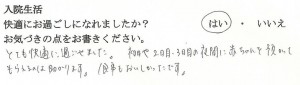 入院生活
快適にお過ごしになれましたか? はい ・ いいえ
お気づきの点をお書きください。
とても快適に過ごせました。初日や2日目・3日目の夜間に赤ちゃんを預かって
もらえるのは助かります。食事もおいしかったです。